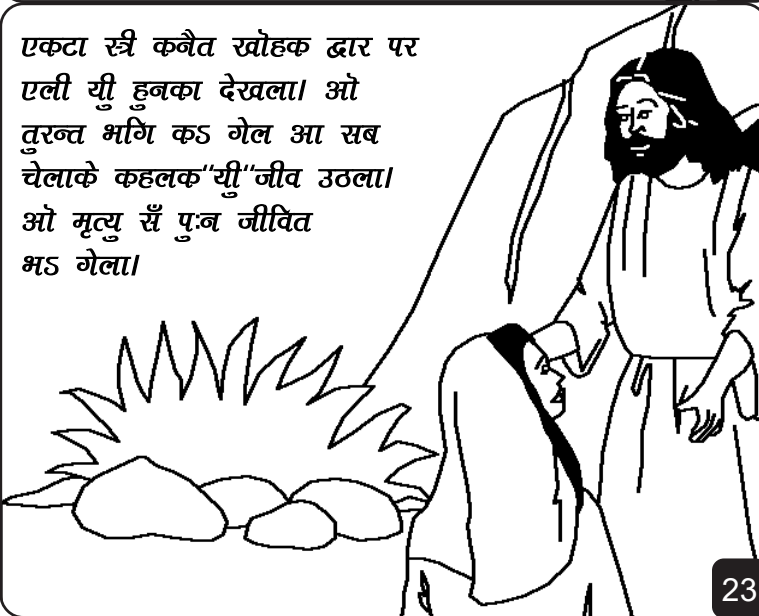 एकटा स्त्री कनैत खोहक द्वार पर
एली यी॒शु हुनका देखला। ओ
तुरन्त भगि कऽ गेल आ सब
चेलाके कहलक"यी॒शु"जीव उठला।
ओ मृत्यु सँ पुःन जीवित
भऽ गेला।
23